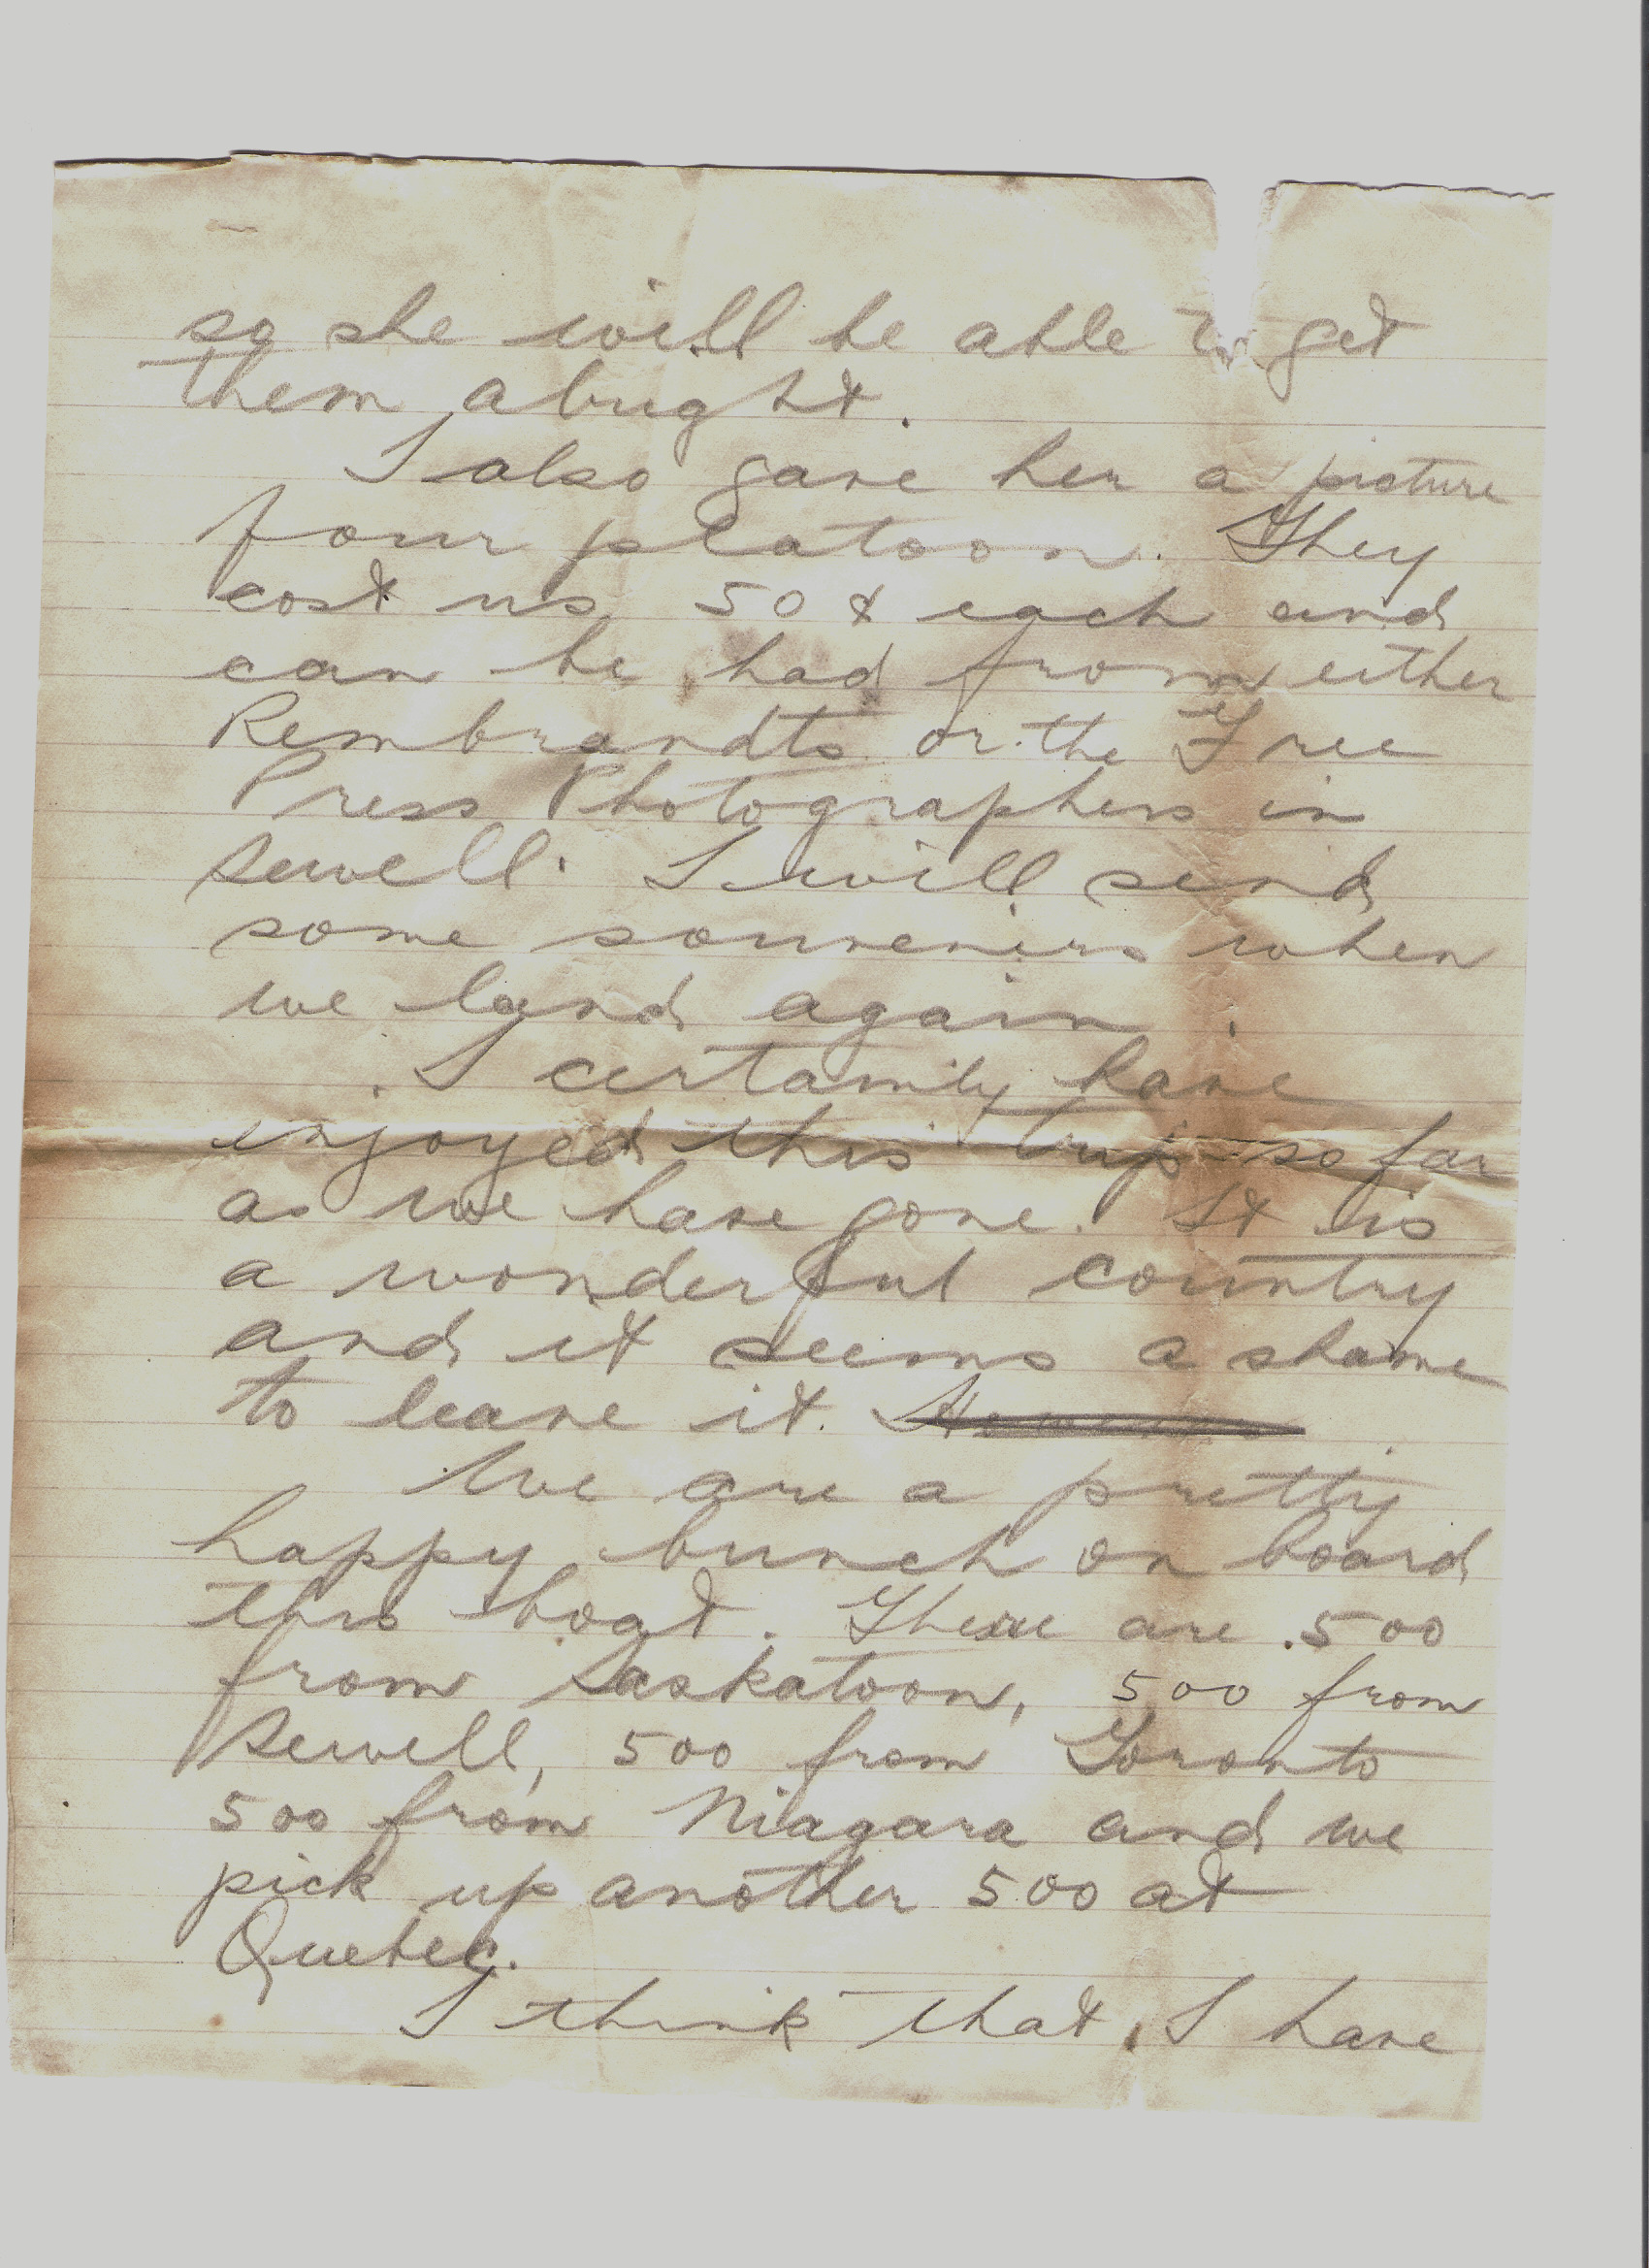 so she will be able to get
them alright.
I also gave her a picture
four platoon. They
cost us 50¢ each and
can be had from either
Rembrandts or the Free
Press Photographers in
Sewell. I will send
some souvenirs when
we land again.
I certainly have
enjoyed this trip so far
as we have gone. It is
a wonderful country
and it seems a shame
to leave it.
We are a pretty
happy bunch on board
this boat. There are 500
from Saskatoon, 500 from
Sewell, 500 from Toronto
500 from Niagara and we
pick up another 500 at
Quebec.
I think that I have